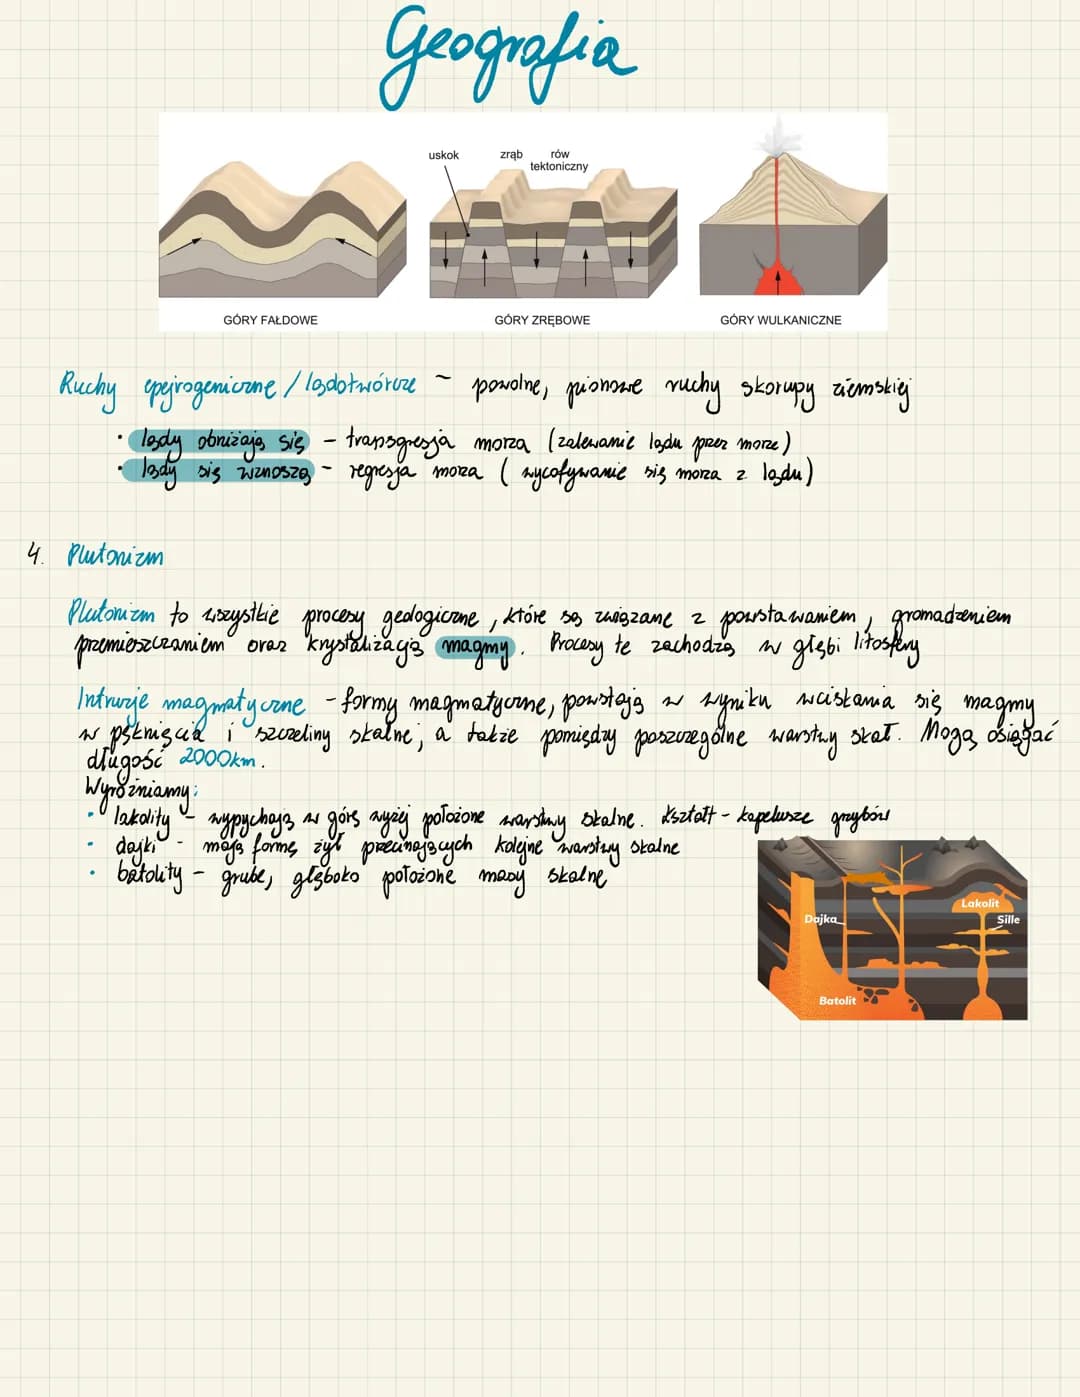 Geografia
uskok zrąb rów
tektoniczny
GÓRY FAŁDOWE GÓRY ZRĘBOWE GÓRY WULKANICZNE
Ruchy epejrogeniczne / lądotwórcze - powolne, pionowe ruchy skorupy ziemskiej
• lądy obniżają się - transgresja morza (zalewanie lądu przez morze)
• lądy się wznoszą - regresja morza (wycofywanie się morza z lądu)
4. Plutonizm
Plutonizm to wszystkie procesy geologiczne, które są związane z powstawaniem, gromadzeniem
przemieszczaniem oraz krystalizacją magmy. Procesy te zachodzą w głębi litosfery
Intruzje magmatyczne - formy magmatyczne, powstają w wyniku wciskania się magmy
w pęknięcia i szczeliny skalne, a także pomiędzy poszczególne warstwy skał. Mogą osiągać
długość 2000km.
Wyróżniamy:
• lakolity - wypychają w górę wyżej położone warstwy skalne. Kształt - kapelusze grzybów
• dajki - mają formę żył przecinających kolejne warstwy skalne
• batolity - grube, głęboko położone masy skalne
Lakolit
Dajka Sille
Batolit